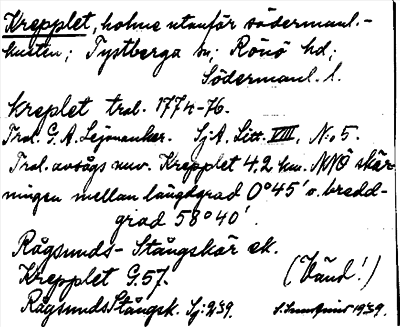 Krepplet, holme utanför södermanl.-
kusten; Tystberga sn; Rönö hd;
Södermanl. l.
Kreplet trol. 1774-76.
Trol. G. A. Lejonanker. Sj.A. Litt. VIII, N:o 5.
Trol. avsågs nuv. Krepplet 4,2 km. NNÖ skär-
ningen mellan längdgrad 0°45' o. bredd-
grad 58°40'.
Rågsunds-Stångskär ek.
Krepplet G.57. (Vänd!)
RågsundsStångsk. Sj. 939. 1939.